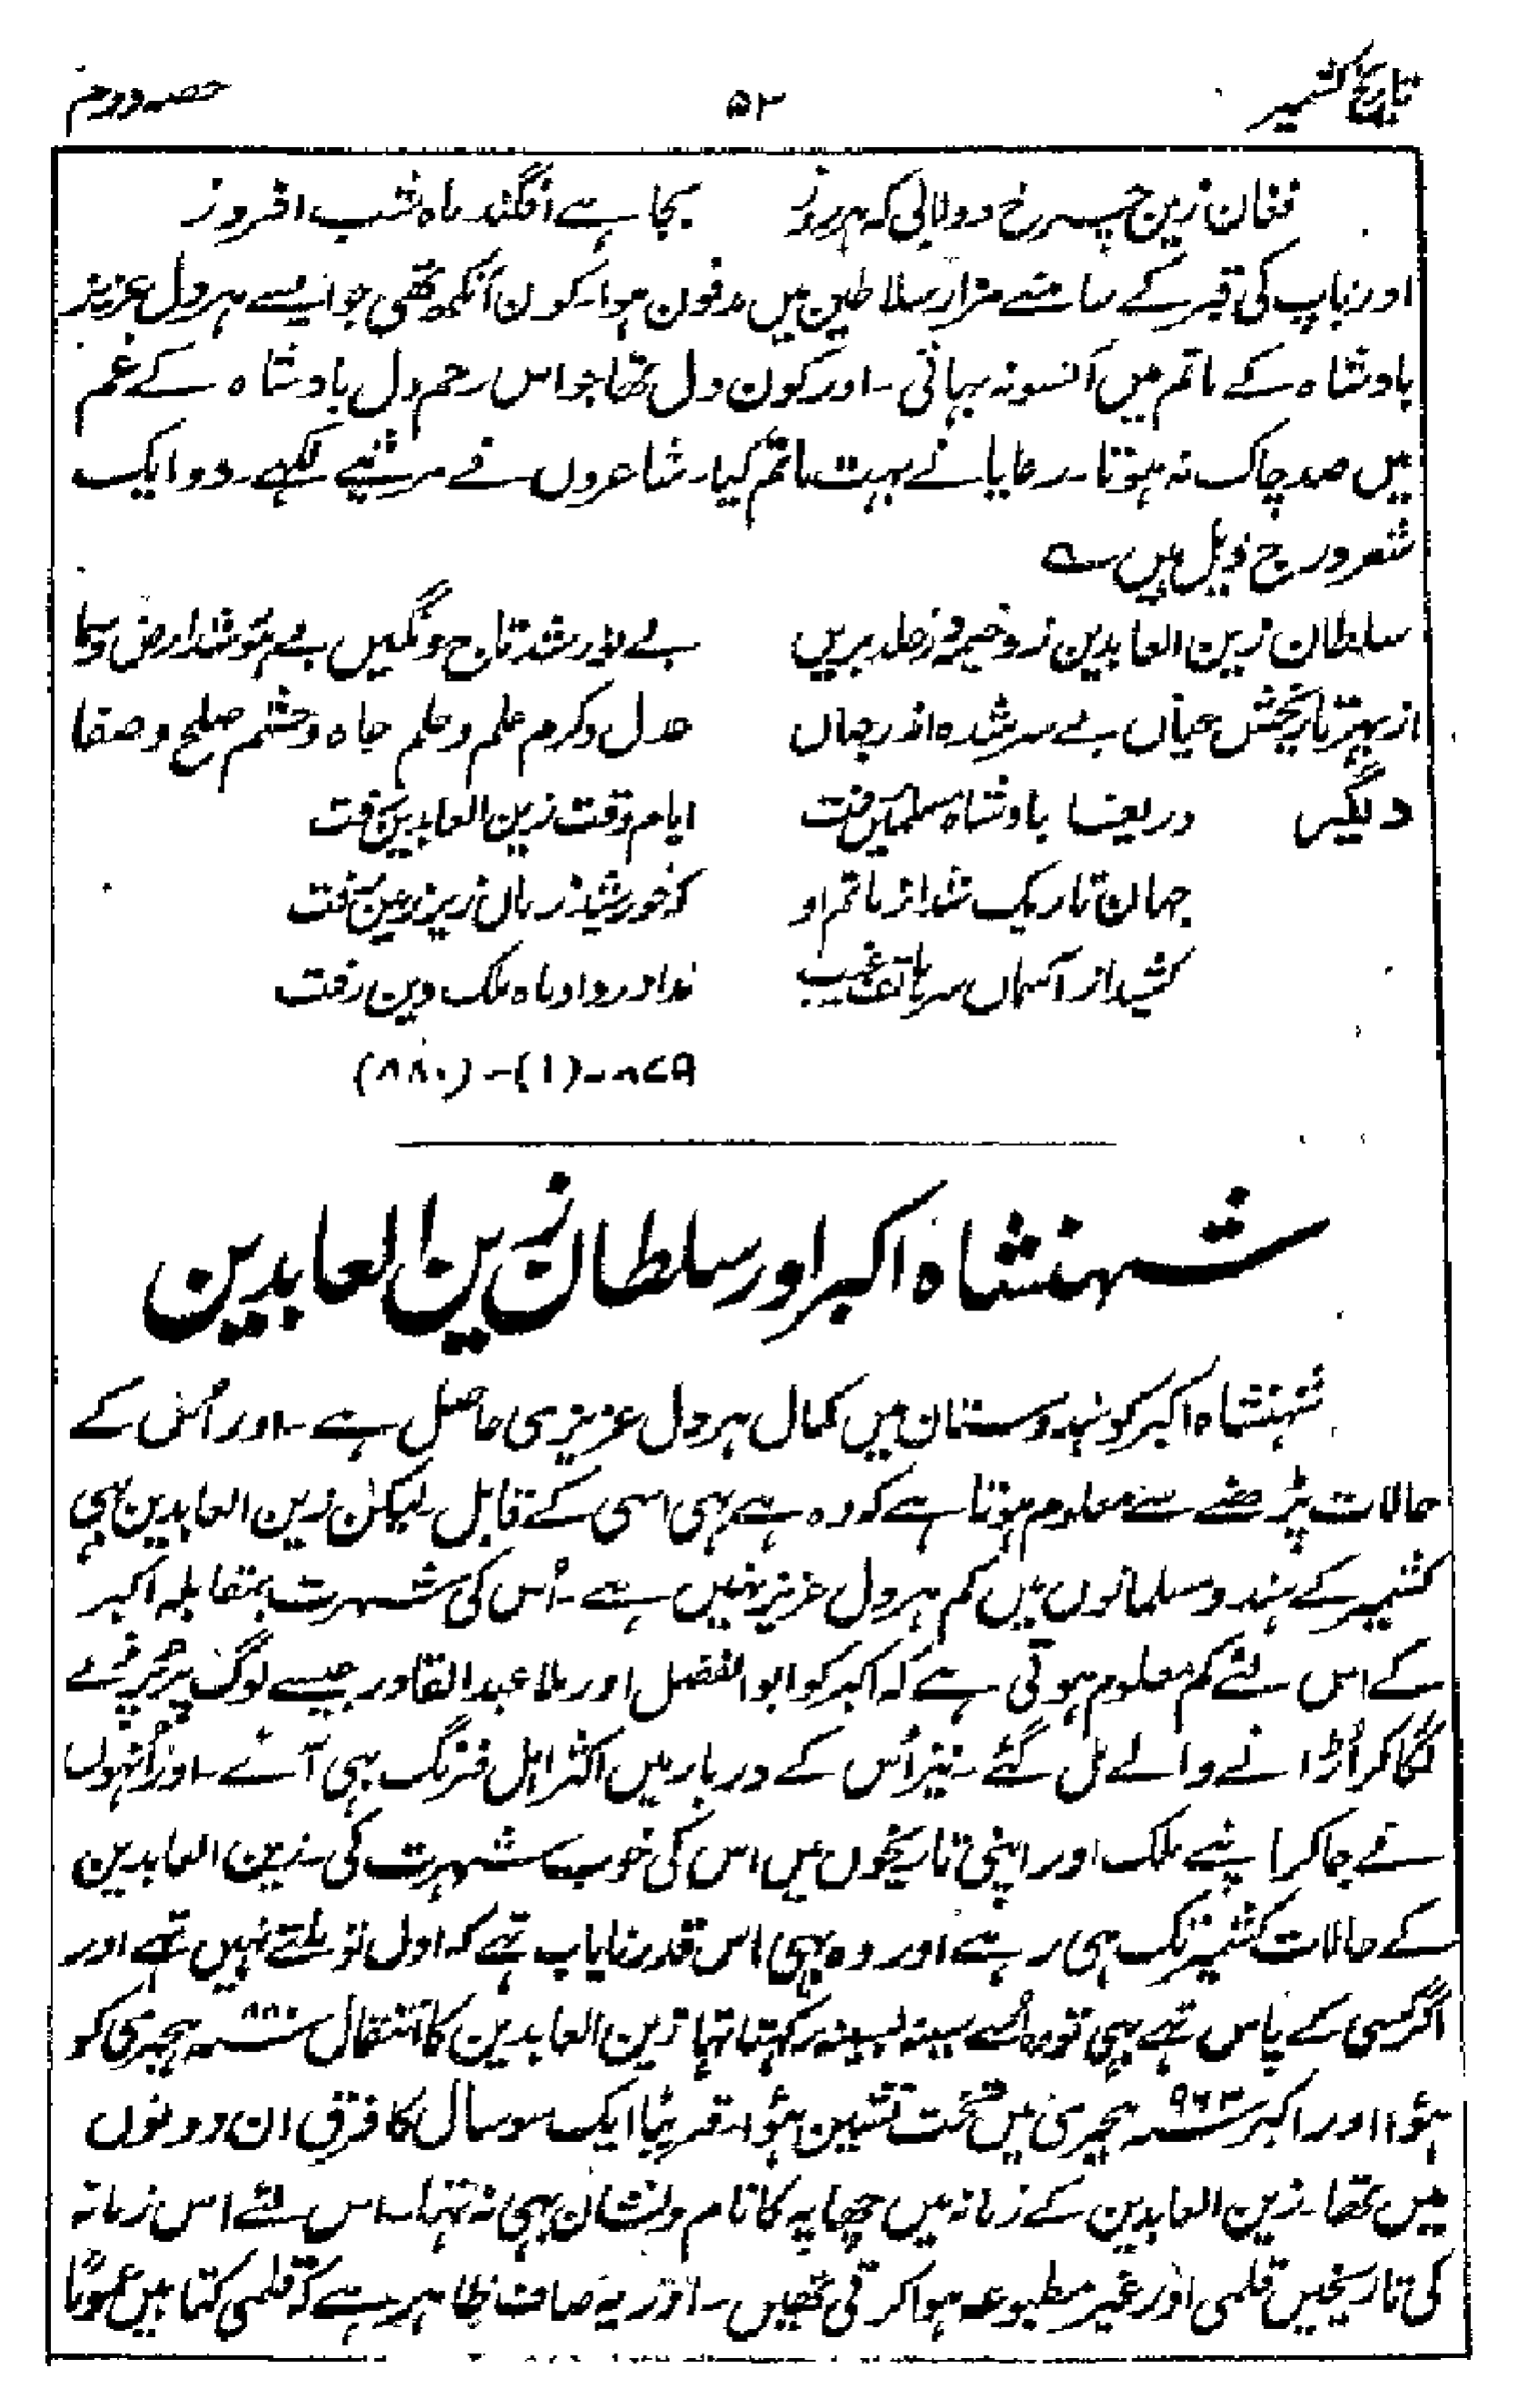 تاریخ کشمیر ۵۲ حصہ دوم
فغان زین چرخ دولابی کہ ہر روز بچاہے افگند ماہ شب افروز
اور باپ کی قبر کے سامنے مزار سلاطین میں مدفون ہوا۔ کون آنکھ تھی جو ایسے ہر دل عزیز
بادشاہ کے ماتم میں آنسو نہ بہاتی۔ اور کون دل تھا جو اس رحم دل بادشاہ کے غم
میں صد چاک نہ ہوتا۔ رعایا نے بہت ماتم کیا۔ شاعروں نے مرثیے لکھے۔ دو ایک
شعر درج ذیل ہیں ؎
سلطان زین العابدین زد خیمہ در خلد بریں بے نور شد تاج و نگیں بے شد ارض و سما
از بہر تاریخش عیاں بے سر شدہ اندر جہاں عدل و کرم علم و حلم جاہ و حشم صلح و صفا
دیگر دریغا بادشاہ رفت ایام وقت زین العابدین رفت
جہان تاریک شد از ماتم او کہ خورشید زماں زیر زمین رفت
کشید از آسماں سر ہاتف غیب ندا در داد ماہ ملک و دین رفت
۸۷۹-(۱)-(۸۸۰)
شہنشاہ اکبر اور سلطان زین العابدین
شہنشاہ اکبر کو ہندوستان میں کمال ہر دل عزیزی حاصل ہے۔ اور اُس کے
حالات پڑھنے سے معلوم ہوتا ہے کہ وہ ہے بہی اسی کے قابل۔ لیکن زین العابدین بہی
کشمیر کے ہندو مسلمانوں میں کم ہر دل عزیز نہیں ہے۔ اُس کی شہرت بمقابلہ اکبر
کے اس لئے کم معلوم ہوتی ہے کہ اکبر کو ابو الفضل اور ملا عبد القادر جیسے لوگ پر پرزے
لگا کر اُڑانے والے مل گئے۔ نیز اُس کے دربار میں اکثر اہل فرنگ بہی آئے۔ اور اُنہوں
نے جا کر اپنے ملک اور اپنی تاریخوں میں اس کی خوب شہرت کی۔ زین العابدین
کے حالات کشمیر تک ہی رہے اور وہ بہی اس قدر نایاب تہے کہ اول تو ملتے نہیں تہے اور
اگر کسی کے پاس تہے بہی تو وہ اُسے سینہ بسینہ رکہتا تہا زین العابدین کا انتقال ۸۸۰ ہجری کو
ہوٴا اور اکبر ۹۶۳ ہجری میں تخت نشین ہوٴا۔ تقریباً ایک سو سال کا فرق ان دونوں
میں تھا۔ زین العابدین کے زمانہ میں چھاپہ کا نام و نشان بہی نہ تہا۔ اس لئے اس زمانہ
کی تاریخیں قلمی اور غیر مطبوعہ ہوا کرتی تھیں۔ اور یہ صاف ظاہر ہے کہ قلمی کتابیں عموماً